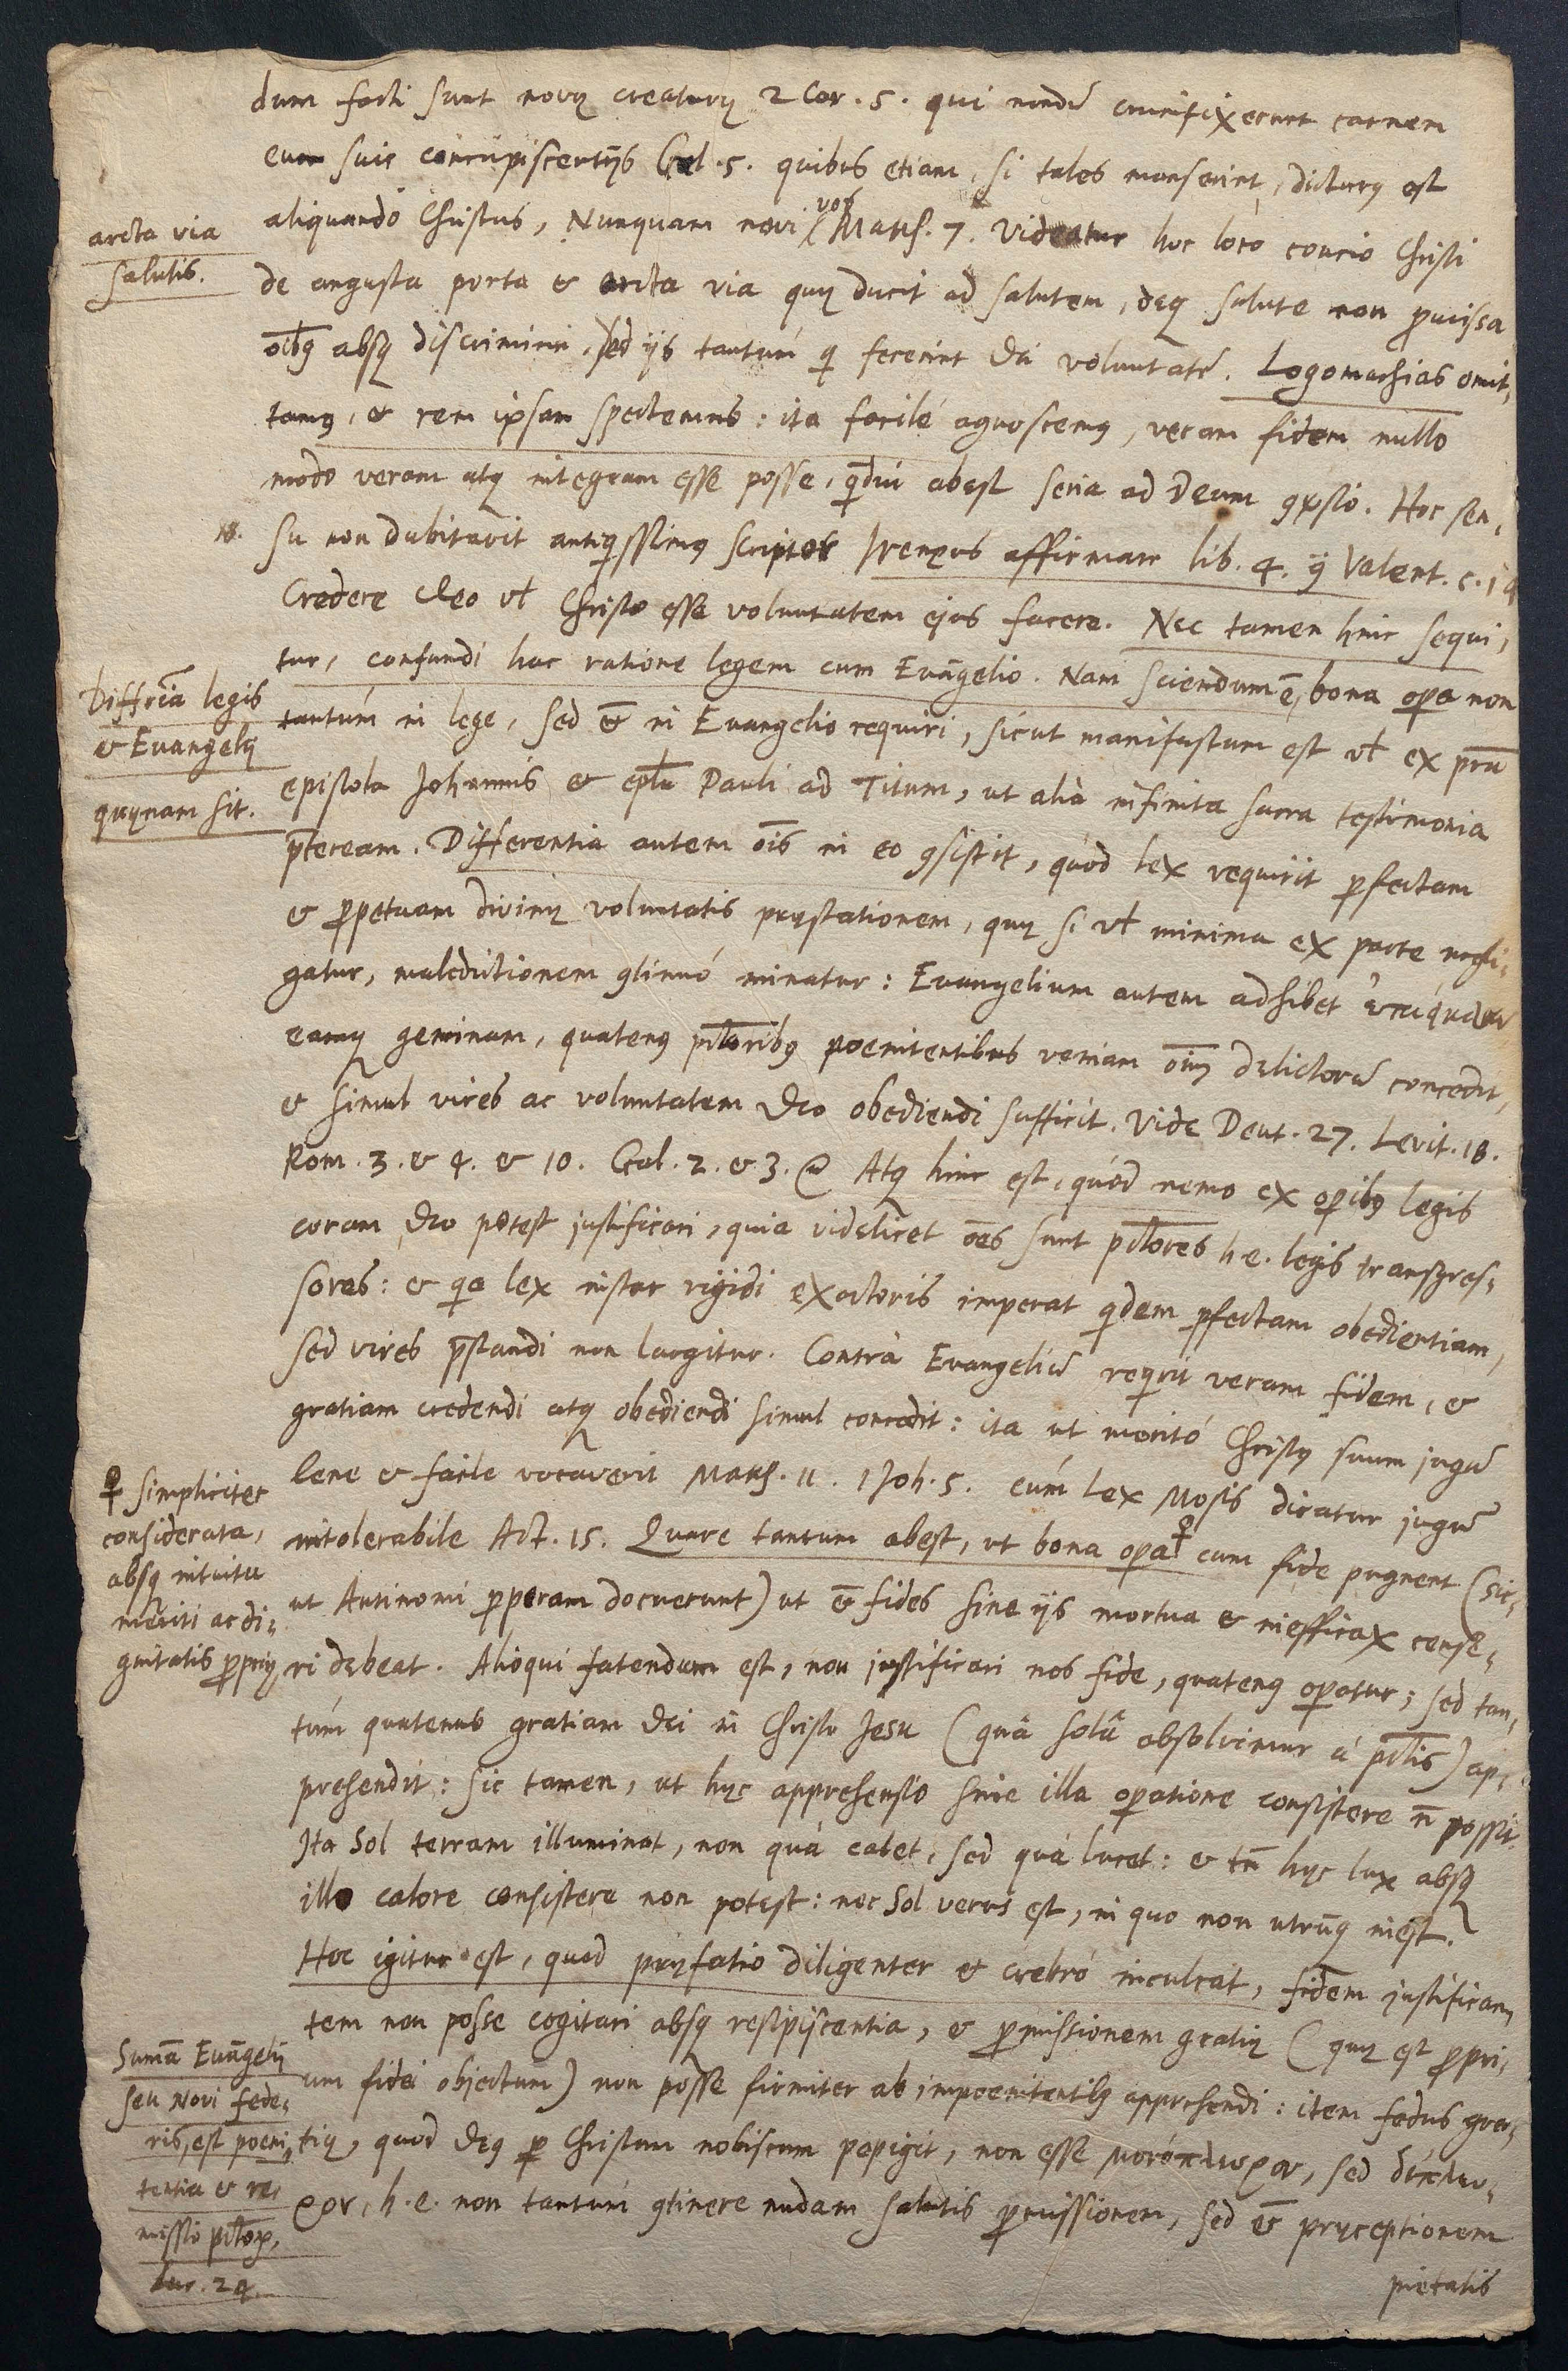 dum facti sunt novæ creaturæ 2 Cor. 5. qui nondū crucifixerunt carnem
cum suis concupiscentijs Gal. 5. quibus etiam, si tales manserint, dicturꝰ est
aliquando Christus, Nunquam novi vos Matth. 7. Videatur hoc loco concio Christi
arcta via
salutis.
de angusta porta & arcta via quæ ducit ad salutem, deq̨ salute non ꝓmissa
oībꝰ absq̨ discrimine, sed ijs tantùm q̄ fecerint Dei voluntatē. Logomachias omit-
tamꝰ, & rem ipsam spectemus: ita facilè agnoscemꝰ, veram fidem nullo
modo veram atq̨ integram esse posse, qᵈdiu abest seria ad Deum ꝯversio. Hoc sen-
18.
su non dubitavit antiqissimꝰ scriptor Irenæus affirmare lib. 4. Valent. c. 14
Credere Deo vł Christo esse voluntatem ejus facere. Nec tamen hinc sequi-
tur, confundi hac ratione legem cum Evāgelio. Nam sciendum ē, bona oꝑa non
Differīa legis
& Evangelij
quænam sit.
tantùm in lege, sed & in Evangelio requiri, sicut manifestum est vł ex prīa
epistola Johannis & epła Pauli ad Titum, ut alia infinita sacra testimonia
p̄teream. Differentia autem oīs in eo ꝯsistit, quòd lex requirit ꝑfectam
& ꝑpetuam divinæ voluntatis præstationem, quæ si vł minima ex parte negli-
gatur, maledictionem ꝯtinuò minatur: Evangelium autem adhibet
eamq̨ geminam, quatenꝰ pctoribꝰ poenitentibus veniam oīum delictorū concedit,
& simul vires ac voluntatem Deo obediendi sufficit. Vide Deut. 27. Levit. 18.
Rom. 3. & 4. & 10. Gal. 2. & 3. Atq̨ hinc est, quòd nemo ex oꝑibꝰ legis
coram Deo potest justificari, quia videlicet oēs sunt pctores h. e. legis transgres-
sores: & qa lex instar rigidi exactoris imperat qdem ꝑfectam obedientiam,
sed vires p̄standi non largitur. Contrà Evangeliū reqrit veram fidem, &
gratiam credendi atq̨ obediendi simul concedit: ita ut meritò Christꝰ suum jugū
lene & facile vocaverit Matth. 11. 1 Joh. 5. cùm lex Mosis dicatur jugū
♀ simpliciter
considerata,
absq̨ intuitu
meriti ac di-
gnitatis ꝓpriæ
intolerabile Act. 15. Quare tantum abest, ut bona oꝑa♀ cum fide pugnent (sic-
ut Antinomi ꝑperam docuerunt) ut & fides sine ijs mortua & inefficax cense-
ri debeat. Alioqui fatendum est, non justificari nos fide, quatenꝰ oꝑatur; sed tan-
tùm quatenus gratiam Dei in Christo Jesu (quâ solâ absolvimur à pctis) ap-
prehendit: sic tamen, ut hæc apprehensio sine illa oꝑatione consistere ñ possit.
Ita Sol terram illuminat, non quà calet, sed quà lucet: & tñ hæc lux absq̨
illo calore consistere non potest: nec Sol verus est, in quo non utrūq̨ inest.
Hoc igitur est, quod præfatio diligenter & crebrò inculcat, fidem justifican-
tem non posse cogitari absq̨ resipiscentia, & ꝓmissionem gratiæ (quæ est ꝓpri-
Sum̄a Evāgelij
seu Novi fede-
ris, est poeni-
tentia & re-
missio pctoꝝ,
Luc. 24.
um fidei objectum) non posse firmiter ab impoenitentibꝰ apprehendi: item fedus gra-
tiæ, quod Deꝰ ꝑ Christum nobiscum pepigit, non esse μονόπλευρον, sed δίπλευ-
ρον, h. e. non tantùm ꝯtinere nudam salutis ꝓmissionem, sed & præceptionem
pietatis